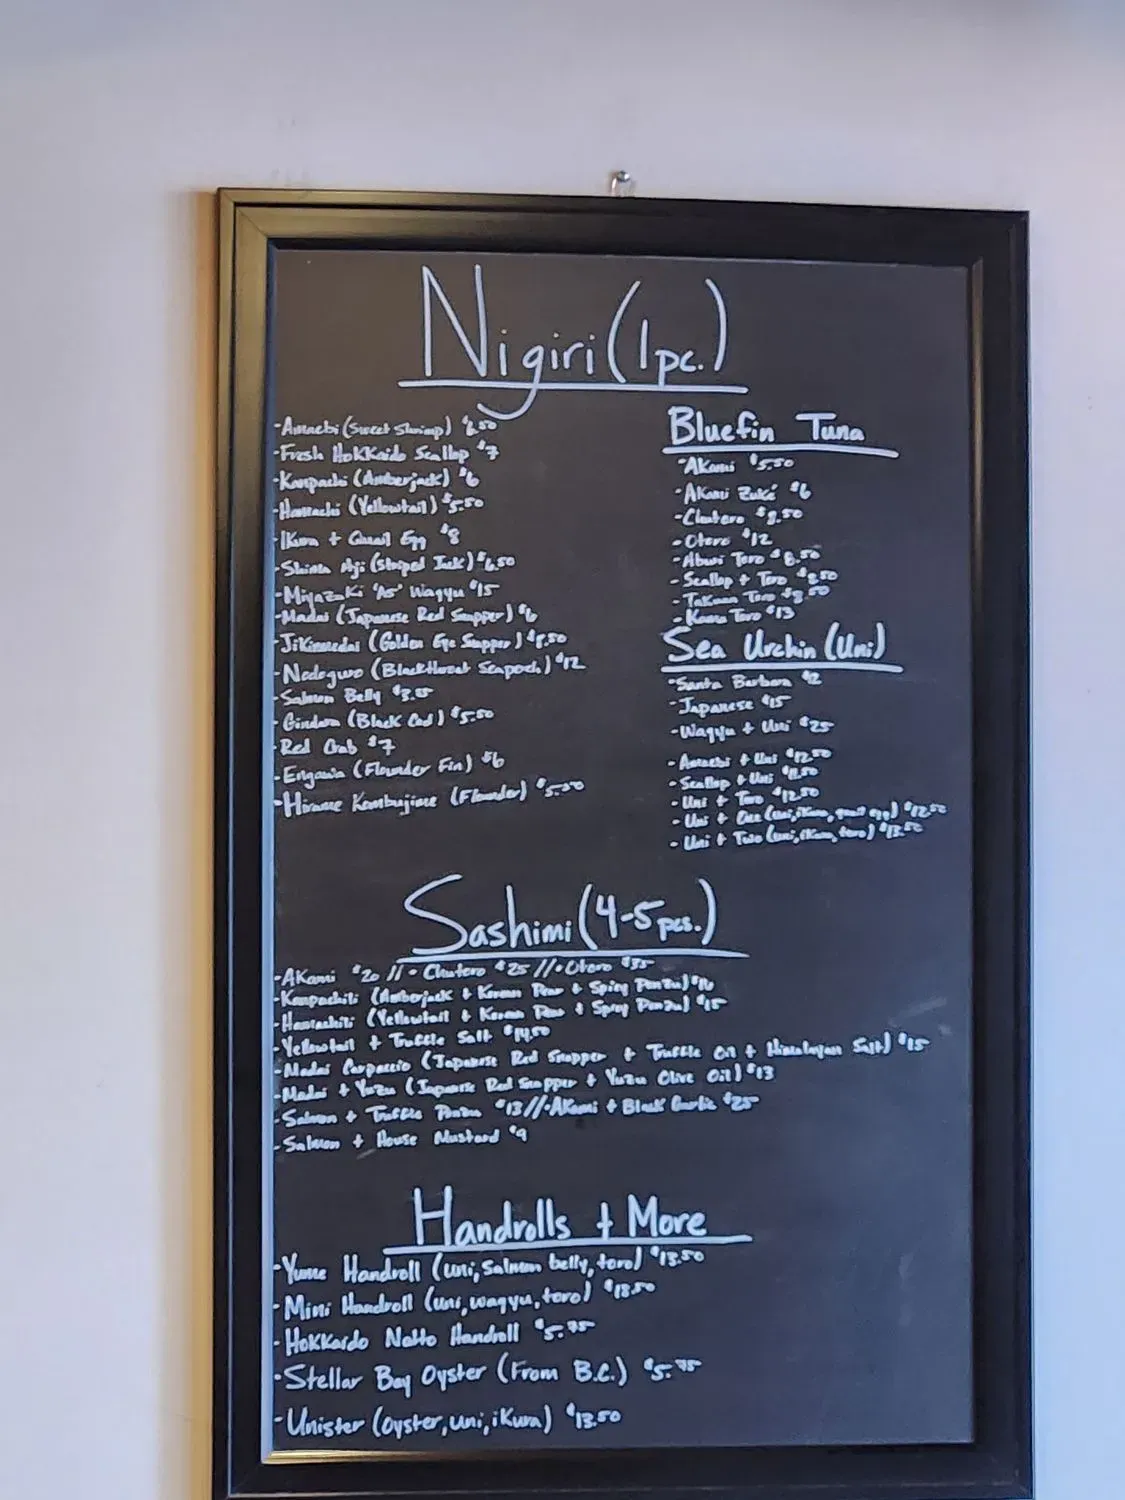 Nigiri (1pc.)
-Amaebi (Sweet Shrimp) $6.50
-Fresh HoKKaido Scallop $7
-Kanpachi (Amberjack) $6
-Hamachi (Yellowtail) $5.50
-IKura + Quail Egg $8
-Shima Aji (Striped Jack) $6.50
-MiyazaKi 'A5' Wagyu $15
-Madai (Japanese Red Snapper) $6
-JiKinmedai (Golden Eye Snapper) $8.50
-Nodoguro (Blackthroat Seaperch) $12
-Salmon Belly
-Gindara (BlacK Cod) $5.50
-Red Crab $7
-Engawa (Flounder Fin) $6
-Hirame Kombujime (Flounder) $5.50
Bluefin Tuna
-AKami $5.50
-AKami Zuké $6
-Chutoro $8.50
-Otoro $12
-Aburi Toro $8.50
-Scallop + Toro $8.50
-TaKuan Toro $8.50
-Kama Toro $13
Sea Urchin (Uni)
-Santa Barbara $12
-Japanese $15
-Wagyu + Uni $25
-Amaebi + Uni $12.50
-Scallop + Uni $11.50
-Uni + Toro $12.50
-Uni + One (uni, iKura, quail egg) $12.50
-Uni + Two (uni, iKura, toro) $13.50
Sashimi (4-5pcs.)
-AKami $20 // • Chutoro $25 // • Otoro $35
-Kanpachili (Amberjack + Korean Pear + Spicy Ponzu) $16
-Hamachili (Yellowtail + Korean Pear + Spicy Ponzu) $15
-Yellowtail + Truffle Salt $14.50
-Madai Carpaccio (Japanese Red Snapper + Truffle Oil + Himalayan Salt) $15
-Madai + Yuzu (Japanese Red Snapper + Yuzu Olive Oil) $13
-Salmon + Truffle Ponzu $13 // • AKami + Black Garlic $25
-Salmon + House Mustard $9
Handrolls + More
-Yume Handroll (uni, salmon belly, toro) $13.50
-Mini Handroll (uni, wagyu, toro) $18.50
-HoKKaido Natto Handroll $5.75
-Stellar Bay Oyster (From B.C.) $5.75
-Unister (oyster, uni, iKura) $13.50